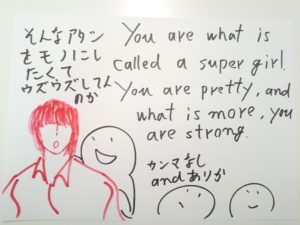 そんなアタシ
をモノにし
たくて
ウズウズしてん
のか
You are what is
called a super girl.
You are pretty, and
what is more, you
are strong.
カンマなし
andありか